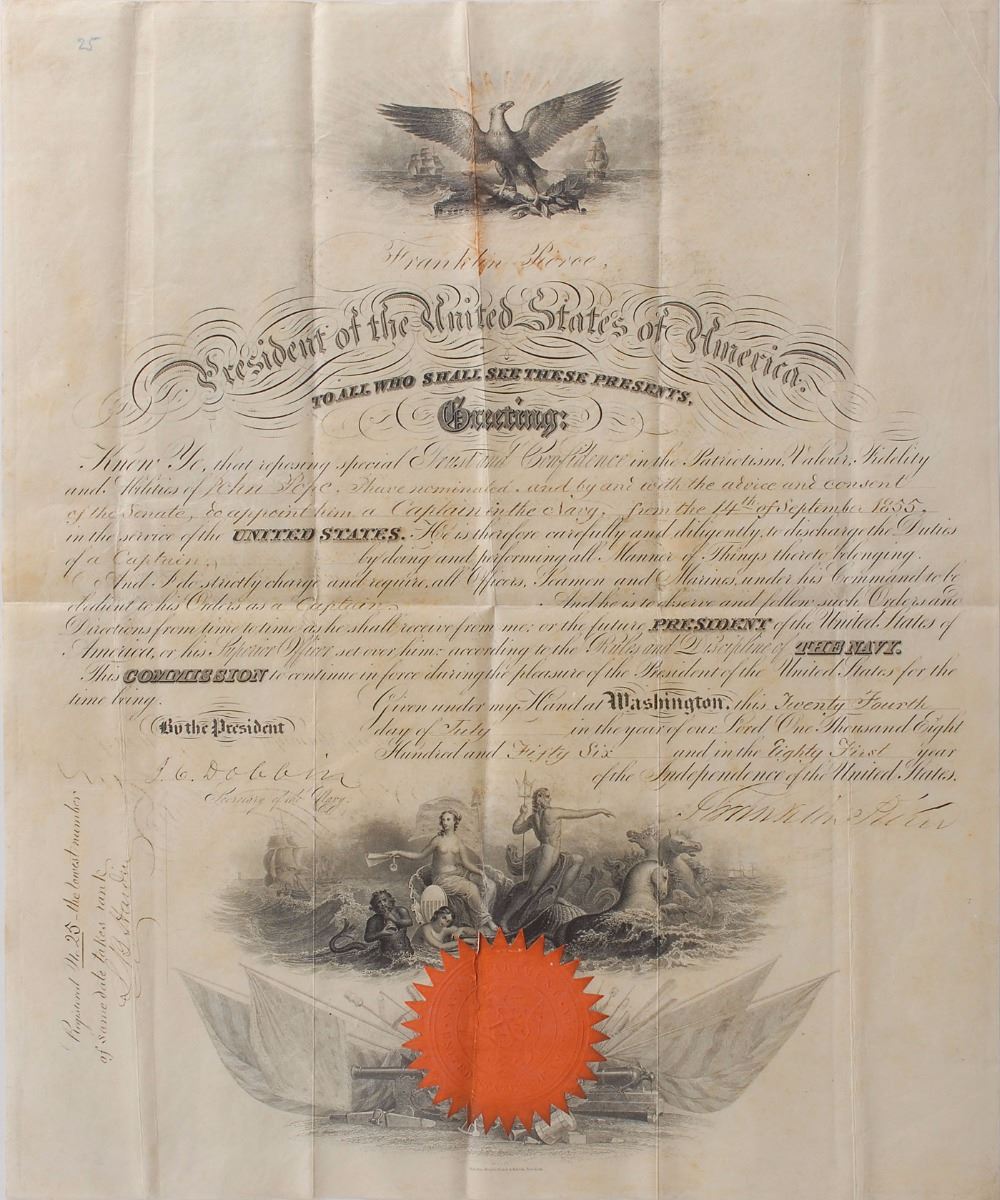 25
Franklin Pierce,
President of the United States of America.
TO ALL WHO SHALL SEE THESE PRESENTS,
Greeting:
Know Ye, that reposing special Trust and Confidence in the Patriotism, Valour, Fidelity
and Abilities of John Pope, I have nominated, and by and with the advice and consent
of the Senate, do appoint him a Captain in the Navy, from the 14th of September 1855,
in the service of the UNITED STATES. He is therefore carefully and diligently, to discharge the Duties
of a Captain, by doing and performing all Manner of Things thereto belonging.
And I do strictly charge and require, all Officers, Seamen and Marines, under his Command to be
obedient to his Orders as a Captain, And he is to observe and follow such Orders and
Directions from time to time as he shall receive from me: or the future PRESIDENT of the United States of
America, or his Superior Officer set over him: according to the Rules and Discipline of THE NAVY.
This COMMISSION to continue in force during the pleasure of the President of the United States for the
time being.
Given under my Hand at Washington, this Twenty Fourth
By the President
day of July in the year of our Lord One Thousand Eight
Hundred and Fifty Six and in the Eighty First year
of the Independence of the United States.
J. C. Dobbin
Secretary of the Navy.
Franklin Pierce
Registered No. 25 - the lowest number
of same date takes rank